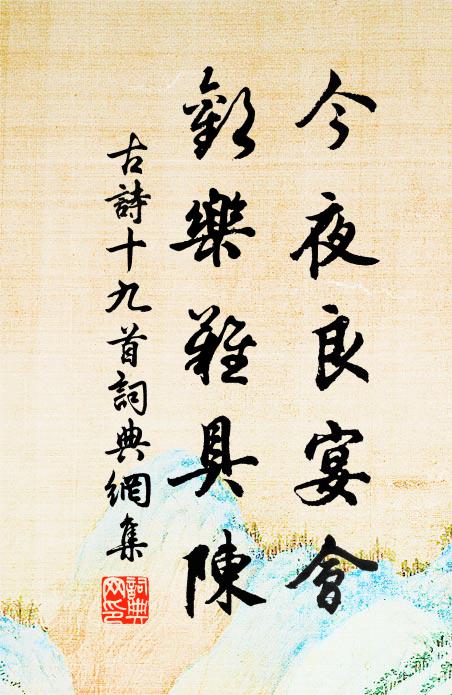 今夜良宴會
歡樂難具陳
古詩十九首詞典網集
詞典